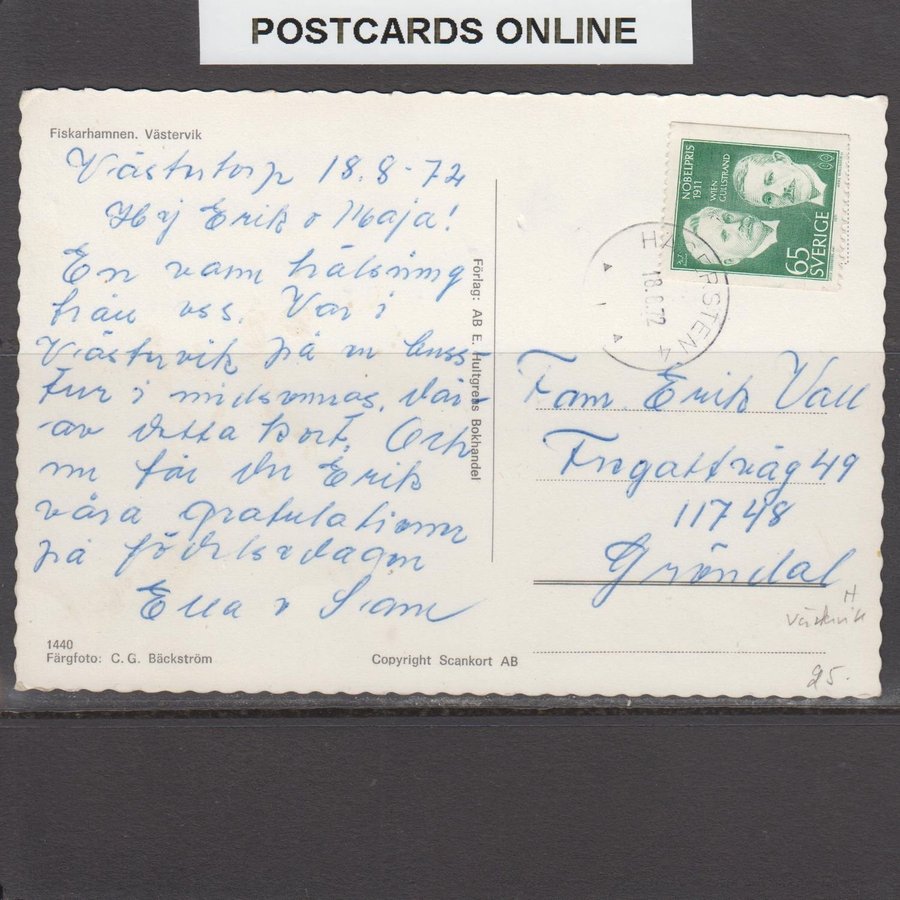 POSTCARDS ONLINE
Fiskarhamnen. Västervik
Västertorp 18.8-72
Hej Erik o Maja!
En varm hälsning
från oss. Var i
Västervik på en buss
tur i midsomras, där
av detta kort. Och
nu får du Erik
våra gratulationer
på födelsedagen
Ella o Sam
1440
Färgfoto: C. G. Bäckström
Copyright Scankort AB
Förlag: AB E. Hultgrens Bokhandel
NOBELPRIS
1911
WIEN
GULLSTRAND
65
SVERIGE
HÄGERSTEN 4
18.8.72
Fam. Erik Vall
Fregattväg 49
117 48
Gröndal
H
Västervik
25.-